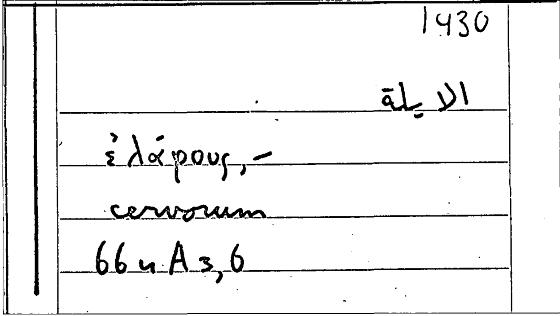 1430
الايلة
ἐλάφους,-
cervorum
66 u A 3, 6